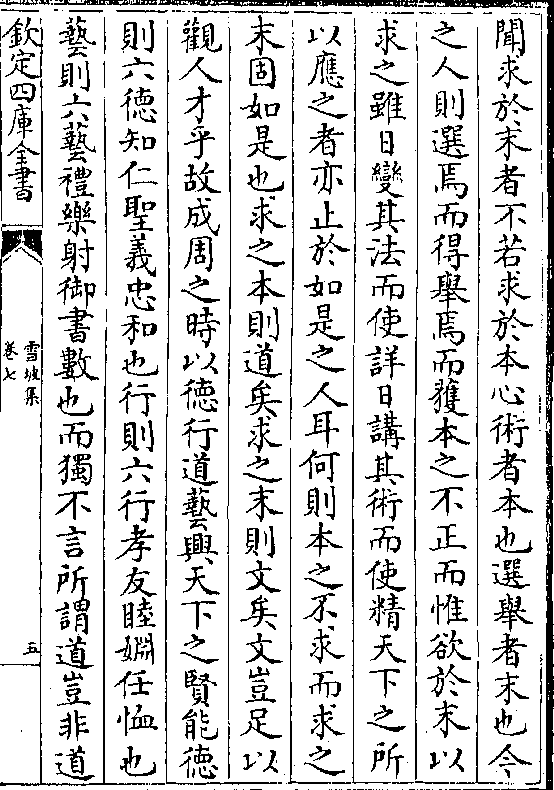 聞求於末者不若求於本心術者本也選舉者末也今
之人則選焉而得舉焉而獲本之不正而惟欲於末以
求之雖日變其法而使詳日講其術而使精天下之所
以應之者亦止於如是之人耳何則本之不求而求之
末固如是也求之本則道矣求之末則文矣文豈足以
觀人才乎故成周之時以德行道藝興天下之賢能德
則六德知仁聖義忠和也行則六行孝友睦婣任恤也
藝則六藝禮樂射御書數也而獨不言所謂道豈非道
欽定四庫全書
雪坡集
卷七
五